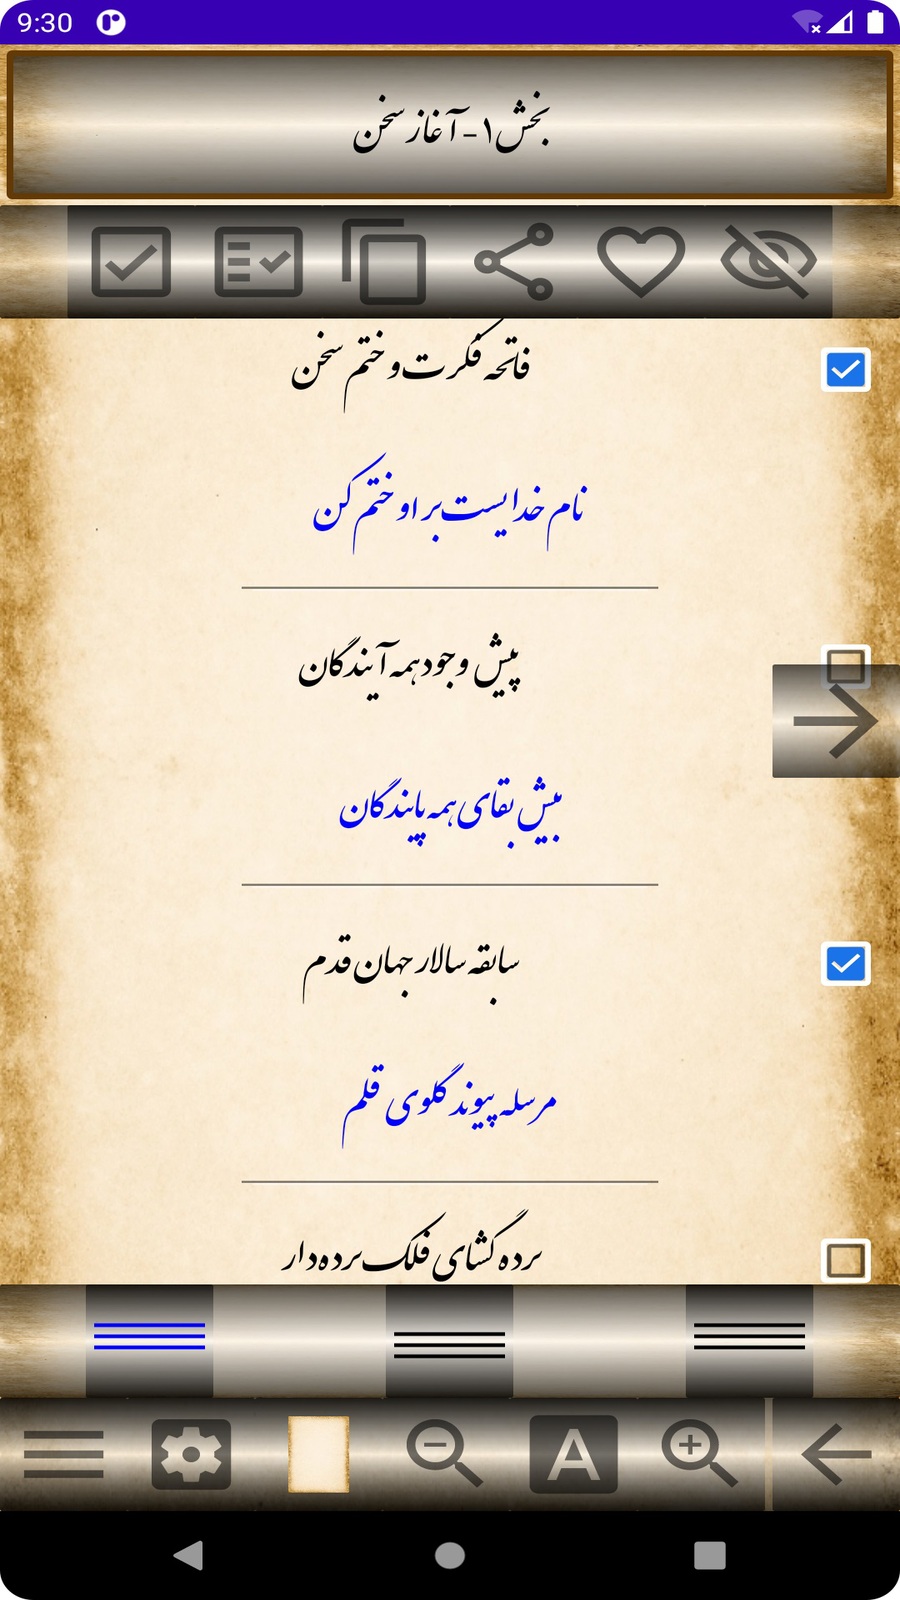 9:30
بخش ۱ - آغاز سخن
فاتحه فکرت و ختم سخن
نام خدایست بر او ختم کن
پیش وجود همه آیندگان
بیش بقای همه پایندگان
سابقه سالار جهان قدم
مرسله پیوند گلوی قلم
پرده گشای فلک پرده‌دار
A